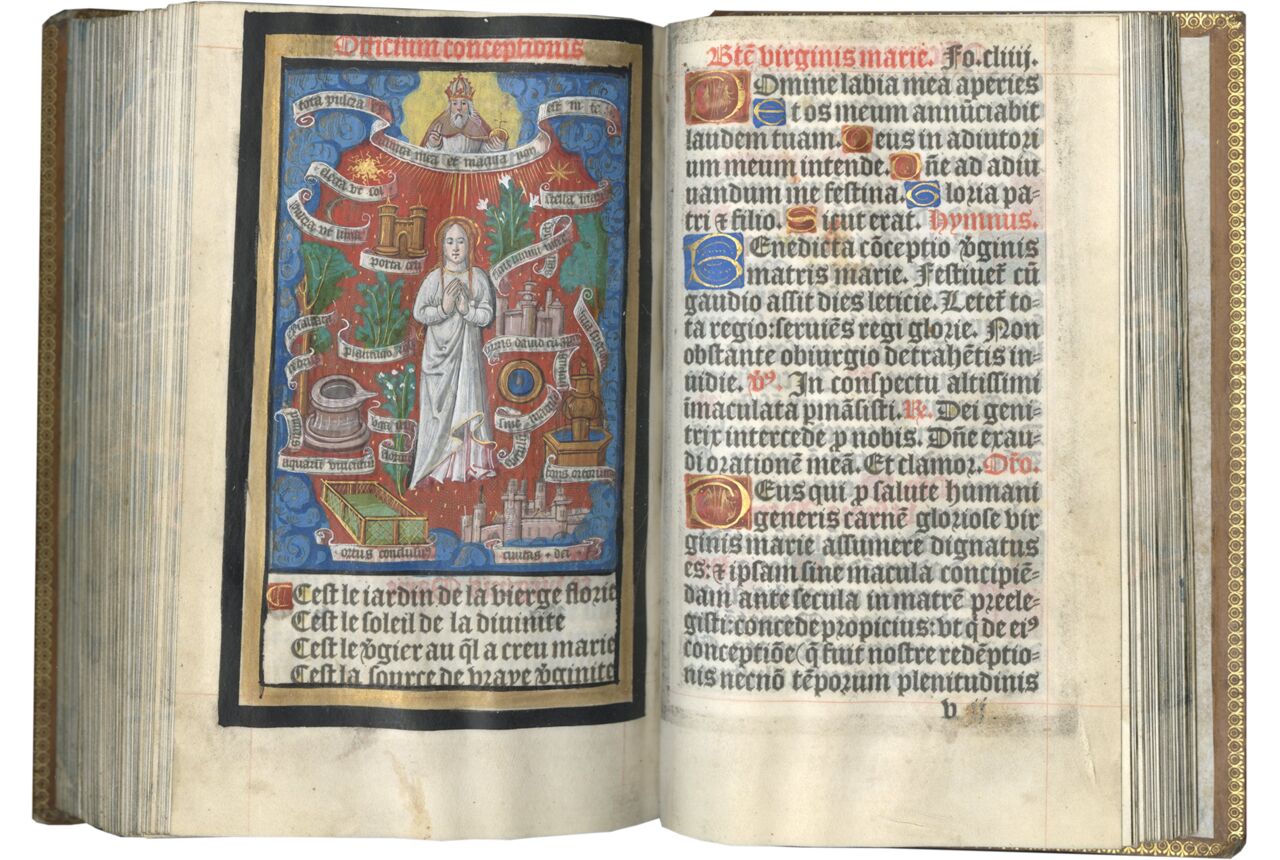 Officium conceptionis
tota pulcra es
amica mea et macula non
est in te
electa vt sol
stella maris
pulcra vt luna
porta celi
sicut lilium inter
turris dauid cu
plantatio
cedr
puteus
aquarum viuentium
virga
floruit
speculum
sine macula
fons ortorum
ortus conclusus
ciuitas • dei
Cest le iardin de la vierge florie
Cest le soleil de la diuinite
Cest le v̄gier au q̄l a creu marie
Cest la source de vraye v̄ginite
Btē virginis marie. Fo. cliiij.
Domine labia mea aperies
Et os meum annūciabit
laudem tuam. Deus in adiutori
um meum intende. Dn̄e ad adiu
uandum me festina. Gloria pa-
tri & filio. Sicut erat. Hymnus.
Benedicta cōceptio v̄ginis
matris marie. Festiuet̄ cū
gaudio assit dies leticie. Letet̄ to-
ta regio: seruiēs regi glorie. Non
obstante obiurgio detrahētis in-
uidie. V9. In conspectu altissimi
imaculata pmāsisti. Re. Dei geni-
trix intercede p nobis. Dn̄e exau-
di orationē meā. Et clamor. Orō.
Deus qui p salute humani
generis carnē gloriose vir
ginis marie assumere dignatus
es: & ipsam sine macula cōncipiē-
dam ante secula in matrē preele-
gisti: concede propicius: vt q̄ de ei9
conceptiōe (q̄ fuit nostre redēptio-
nis necnō tēporum plenitudinis
v ij